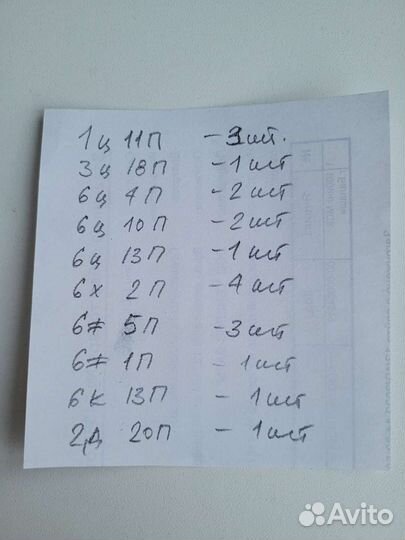 1ц 11П - 3шт.
3ц 18П - 1шт
6ц 4П - 2шт
6ц 10П - 2шт
6ц 13П - 1шт
6х 2П - 4шт
6ж 5П - 3шт
6ж 1П - 1шт
6к 13П - 1шт
2д 20П - 1шт
Avito